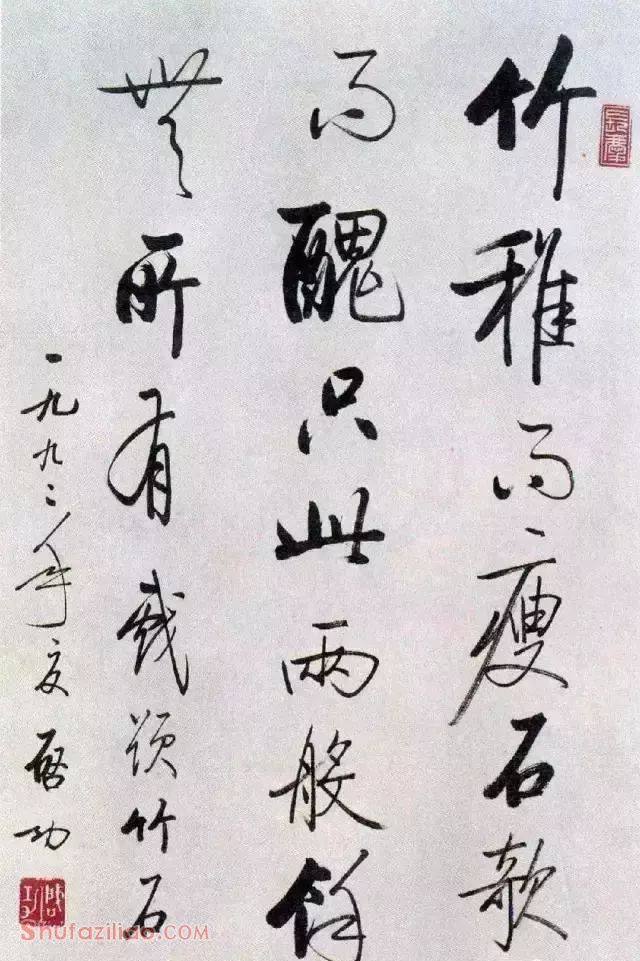 竹稚而瘦石欹
而醜只此兩般餘
無所有戲題竹石
一九九二年夏啟功
Shufaziliao.com